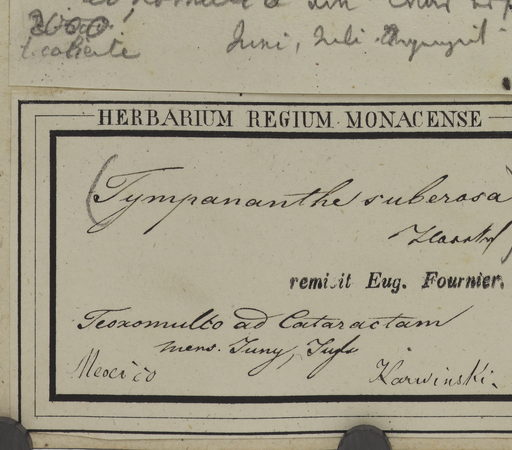 Juni, Juli
t. caliente
HERBARIUM REGIUM MONACENSE
(Tympananthe suberosa)
remisit Eug. Fournier.
Teoxomulco ad Cataractam
mens. Juny, July
Mexico Karwinski.